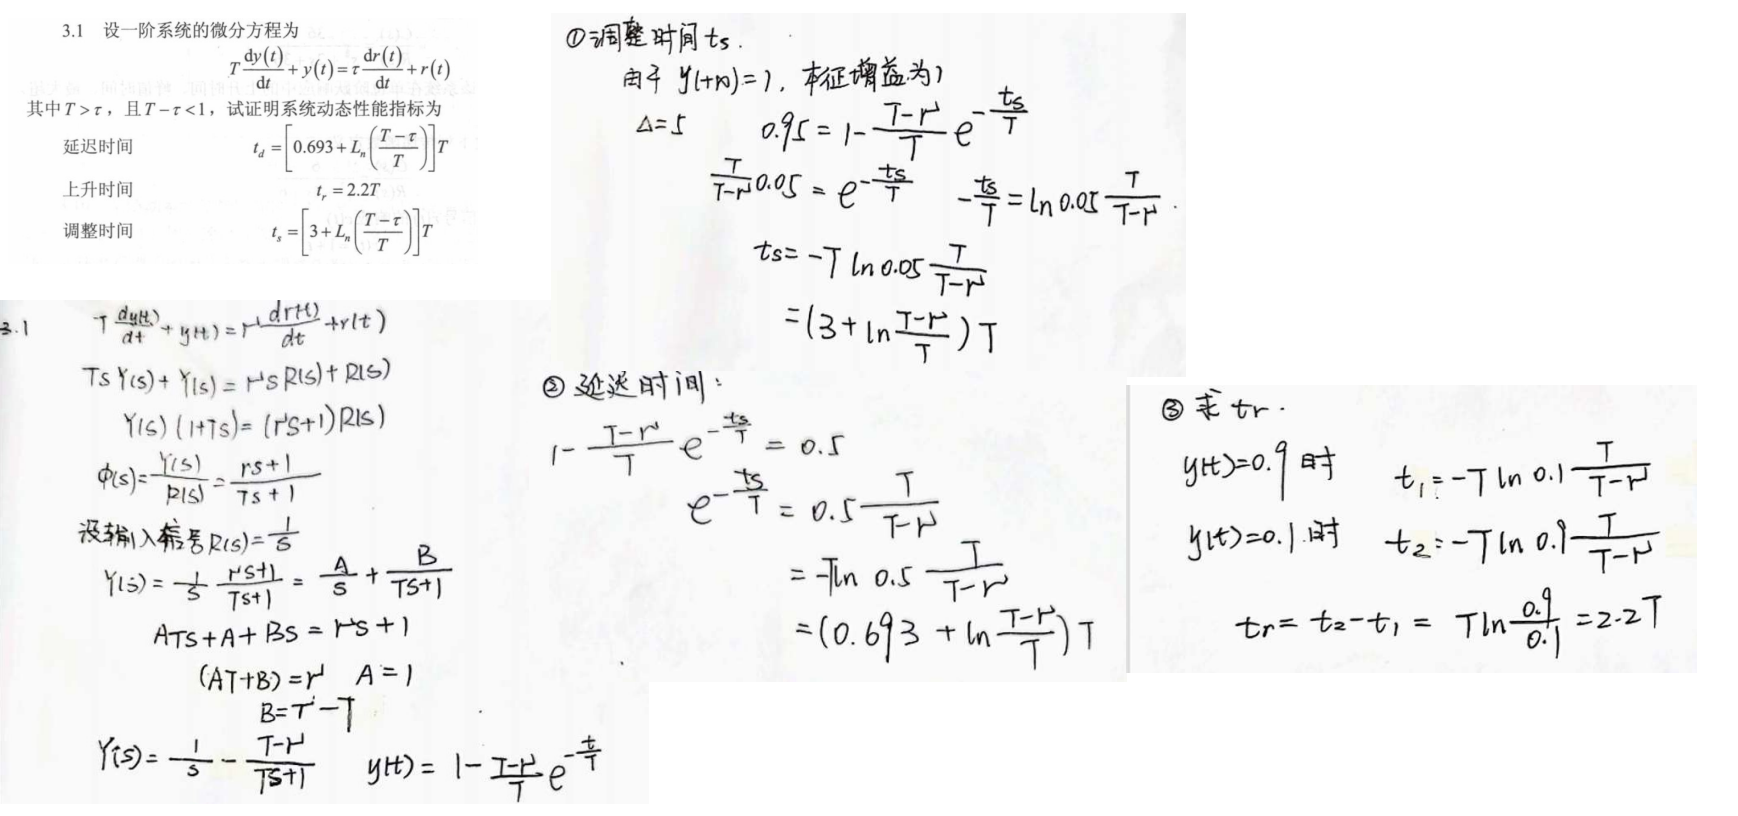 3.1 设一阶系统的微分方程为
T dy(t)/dt + y(t) = τ dr(t)/dt + r(t)
其中 T > τ，且 T − τ < 1，试证明系统动态性能指标为
延迟时间 t_d = [0.693 + L_n((T − τ)/T)]T
上升时间 t_r = 2.2T
调整时间 t_s = [3 + L_n((T − τ)/T)]T
3.1 T dy(t)/dt + y(t) = τ dr(t)/dt + r(t)
TsY(s) + Y(s) = τsR(s) + R(s)
Y(s)(1+Ts) = (τs+1)R(s)
φ(s) = Y(s)/R(s) = (τs+1)/(Ts+1)
设输入信号R(s) = 1/s
Y(s) = 1/s (τs+1)/(Ts+1) = A/s + B/(Ts+1)
ATs + A + Bs = τs + 1
(AT+B) = τ A = 1
B = τ − T
Y(s) = 1/s − (T−τ)/(Ts+1) y(t) = 1 − (T−τ)/T e^(−t/T)
①调整时间 ts.
由于 y(+∞) = 1, 本征增益为1
Δ=5 0.95 = 1 − (T−τ)/T e^(−ts/T)
T/(T−τ) 0.05 = e^(−ts/T) −ts/T = ln 0.05 T/(T−τ).
ts = −T ln 0.05 T/(T−τ)
= (3 + ln (T−τ)/T) T
② 延迟时间：
1 − (T−τ)/T e^(−ts/T) = 0.5
e^(−ts/T) = 0.5 T/(T−τ)
= −T ln 0.5 T/(T−τ)
= (0.693 + ln (T−τ)/T) T
③ 求 tr.
y(t) = 0.9 时 t₁ = −T ln 0.1 T/(T−τ)
y(t) = 0.1 时 t₂ = −T ln 0.9 T/(T−τ)
tr = t₂ − t₁ = T ln 0.9/0.1 = 2.2T